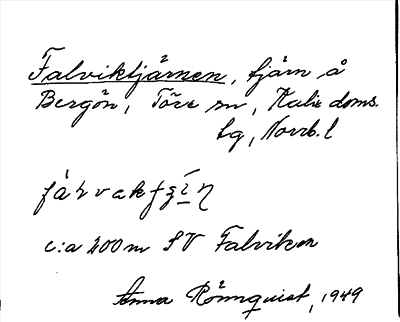 Falviktjärnen, tjärn å
Bergön, Töre sn, Kalix doms.
lg, Norrb. l
c:a 200 m SV Falviken
Anna Rönnquist, 1949